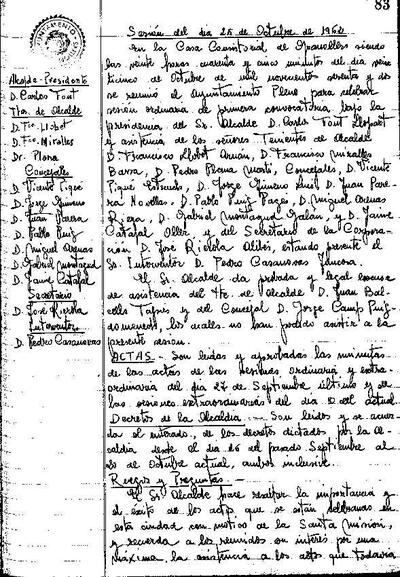 83
Sesión del día 25 de Octubre de 1962
En la Casa Consistorial de Granollers siendo
las veinte horas cuarenta y cinco minutos del día vein
ticinco de Octubre de mil novecientos sesenta y dos
se reunió el Ayuntamiento Pleno para celebrar
sesión ordinaria de primera convocatoria bajo la
presidencia del Sr. Alcalde D. Carlos Font Llopart
y asistencia de los señores Tenientes de Alcalde
D. Francisco Llobet Arnán, D. Francisco Miralles
Barra, D. Pedro Plana Martí, Concejales, D. Vicente
Piqué D. Jorge Gimeno D. Juan Parera
Novellas, D. Pablo Puig Pagés, D. Miguel Arenas
Riera, D. Gabriel Montagud Galán, y D. Jaime
Catafal Oller y del Secretario de la Corpora-
ción D. José Rierola estando presente el
Sr. Interventor D. Pedro Casanovas
El Sr. Alcalde da probada y legal excusa
de asistencia del Tte. de Alcalde D. Juan Bal
cells y del Concejal D. Jorge Camp Puig
domenech, los cuales no han podido asistir a la
presente sesión.
ACTAS - Son leídas y aprobadas las minutas
de las actas de las sesiones ordinaria y extra-
ordinaria del día 27 de Septiembre último y de
las sesiones extraordinarias del día 2 del actual
Decretos de la Alcaldía.- Son leídos y se acuer
da el enterado, de los decretos dictados por la Al
caldía desde el día 26 del pasado Septiembre al
20 de Octubre actual, ambos inclusive.
Ruegos y Preguntas -
El Sr. Alcalde hace resaltar la importancia y
el éxito de los actos que se están celebrando en
esta ciudad con motivo de la Santa Misión,
y recuerda a los reunidos su interés por una
máxima la asistencia a los actos que todavía
Alcalde-Presidente
D. Carlos Font
Ttes. de Alcalde
D. Fco. Llobet
D. Fco. Miralles
Dr. Plana
Concejales
D. Vicente Piqué
D. Jorge Gimeno
D. Juan Parera
D. Pablo Puig
D. Miguel Arenas
D. Gabriel Montagud
D. Jaime Catafal
Secretario
D. José Rierola
Interventor
D. Pedro Casanovas